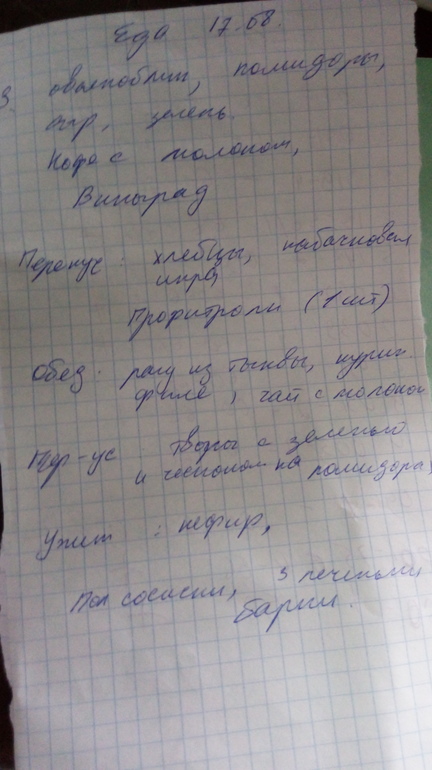 Еда 17.08.
З. овсяноблин, помидоры,
сыр, зелень.
Кофе с молоком,
Виноград
Перекус: хлебцы, кабачковая
икра,
Профитроли (1 шт)
Обед: рагу из тыквы, курин.
филе, чай с молоком
Пер-ус творог с зеленью
и чесноком на помидорах
Ужин: кефир,
Пол сосиски, 3 печеньки
барни.